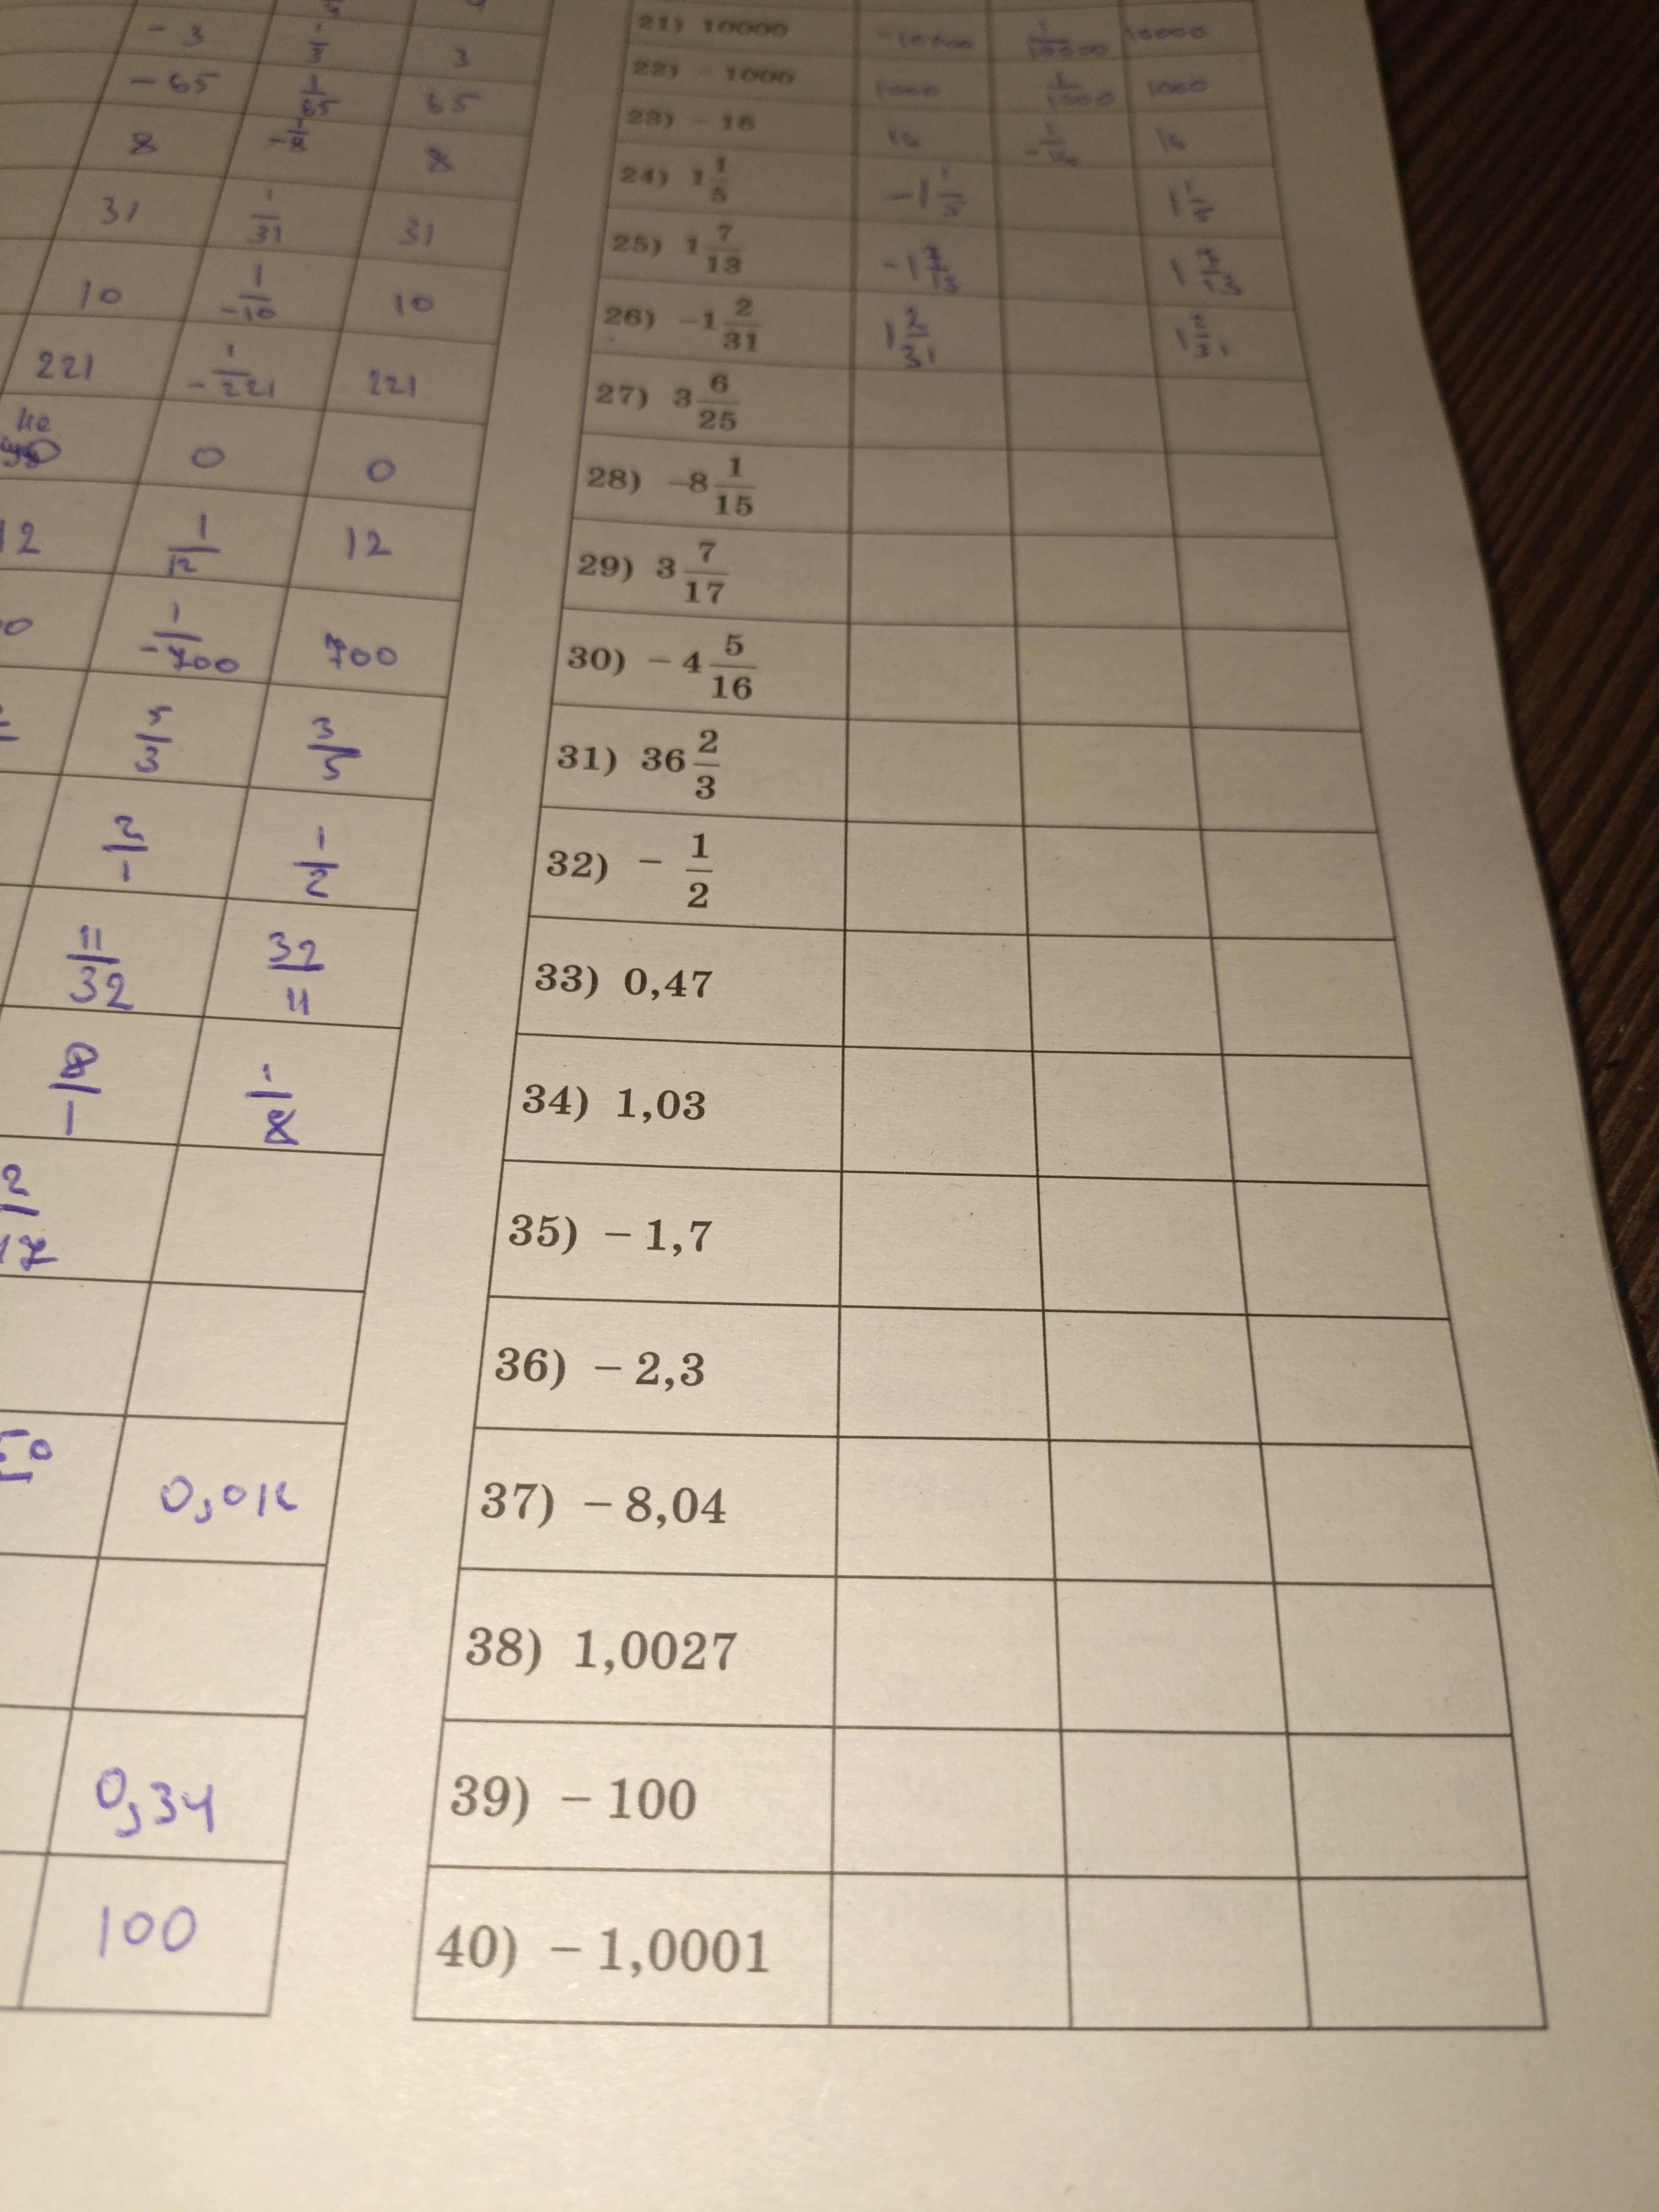 - 3 3
- 65 1/65 65
8 8
31 1/31 31
10 -1/10 10
221 -1/221 221
не
0 0
12 1/12 12
-1/700 700
5/3 3/5
2/1 1/2
11/32 32/11
8/1 1/8
2/17
0,34
100
21) 10000 -10000 1/10000 10000
22) - 1000 1000 1/1000 1000
23) - 16 16 -1/16 16
24) 1 1/5 -1 1/5 1 1/5
25) 1 7/13 -1 7/13 1 7/13
26) -1 2/31 1 2/31 1 2/31
27) 3 6/25
28) -8 1/15
29) 3 7/17
30) - 4 5/16
31) 36 2/3
32) - 1/2
33) 0,47
34) 1,03
35) - 1,7
36) - 2,3
37) - 8,04
38) 1,0027
39) - 100
40) - 1,0001